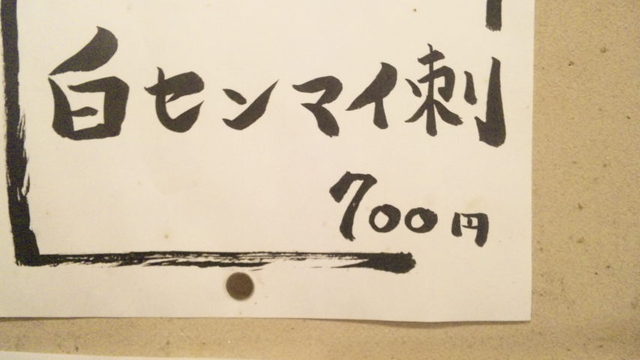 白センマイ刺
700円